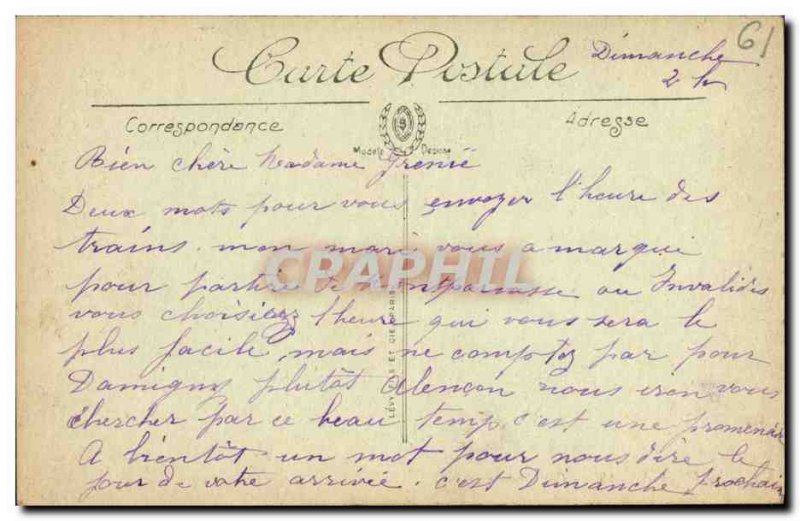 61
Carte Postale
Dimanche
2 h
Correspondance
Adresse
Modèle Déposé
Bien chère Madame Grenié
Deux mots pour vous envoyer l'heure des
trains. mon mari vous a marqui
pour partir de Montparnasse ou Invalides
vous choisiez l'heure qui vous sera le
plus facile, mais ne comptez par pour
Damigny plutôt Alençon nous iren vous
chercher par ce beau temp. c'est une promenad
A bientôt un mot pour nous dire le
jour de votre arrivée. c'est Dimanche prochain
LÉVY FILS ET CIE, PARIS
CPAPHIL